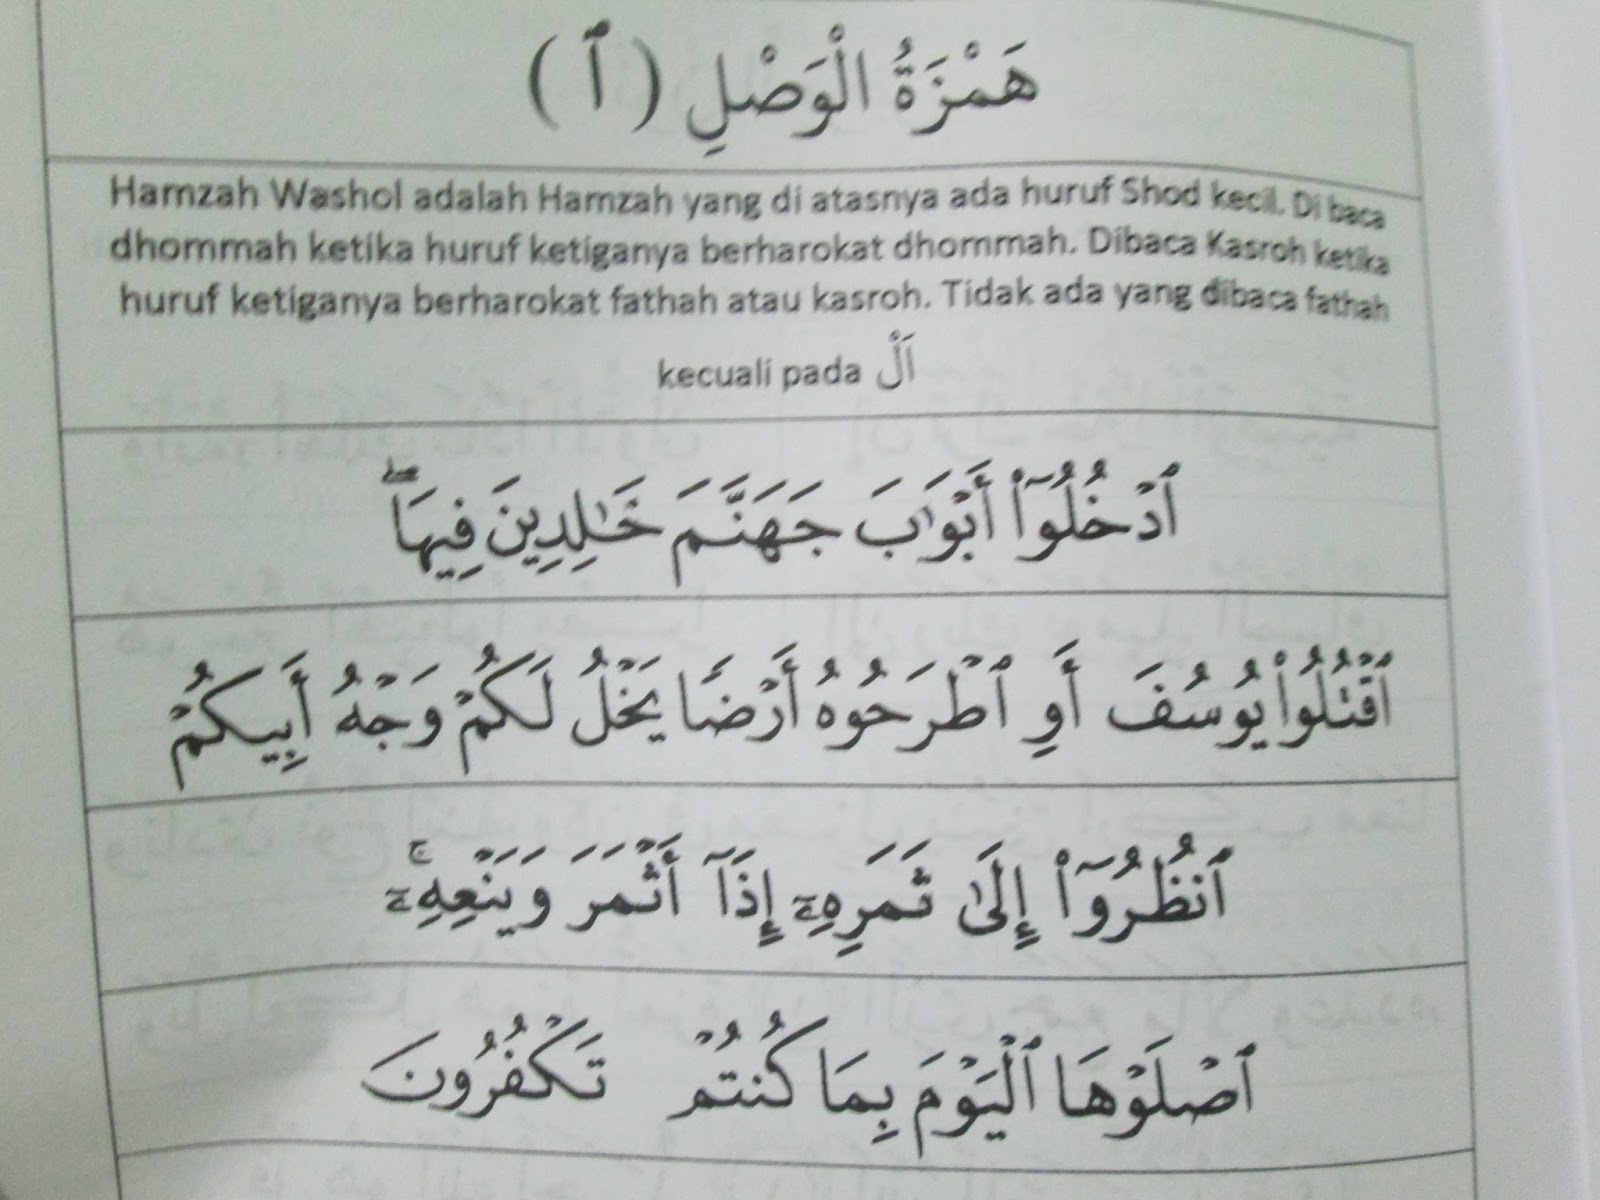 هَمْزَةُ الْوَصْلِ ( ٱ )
Hamzah Washol adalah Hamzah yang di atasnya ada huruf Shod kecil. Di baca
dhommah ketika huruf ketiganya berharokat dhommah. Dibaca Kasroh ketika
huruf ketiganya berharokat fathah atau kasroh. Tidak ada yang dibaca fathah
kecuali pada اَلْ
ٱدۡخُلُوٓاْ أَبۡوَٰبَ جَهَنَّمَ خَٰلِدِينَ فِيهَاۖ
ٱقۡتُلُواْ يُوسُفَ أَوِ ٱطۡرَحُوهُ أَرۡضٗا يَخۡلُ لَكُمۡ وَجۡهُ أَبِيكُمۡ
ٱنظُرُوٓاْ إِلَىٰ ثَمَرِهِۦٓ إِذَآ أَثۡمَرَ وَيَنۡعِهِۦٓۚ
ٱصۡلَوۡهَا ٱلۡيَوۡمَ بِمَا كُنتُمۡ تَكۡفُرُونَ